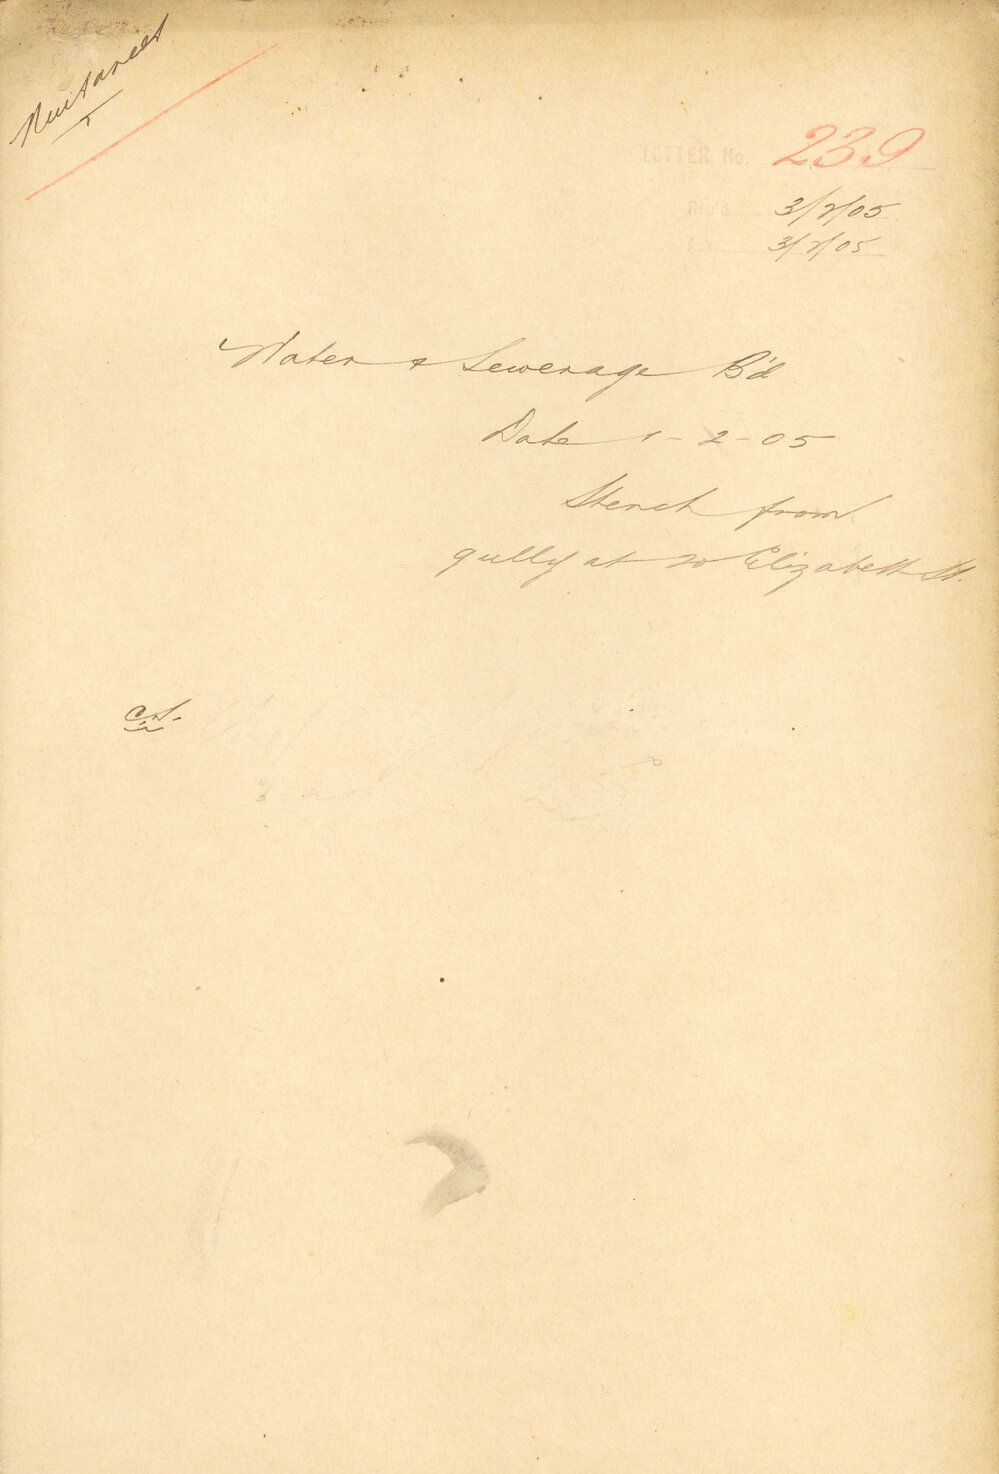 Nuisances
LETTER No. 239
Rec'd. 3/2/05
Ack. 3/2/05
Water & Sewerage B'd
Date 1-2-05
Stench from
gully at 20 Elizabeth St.